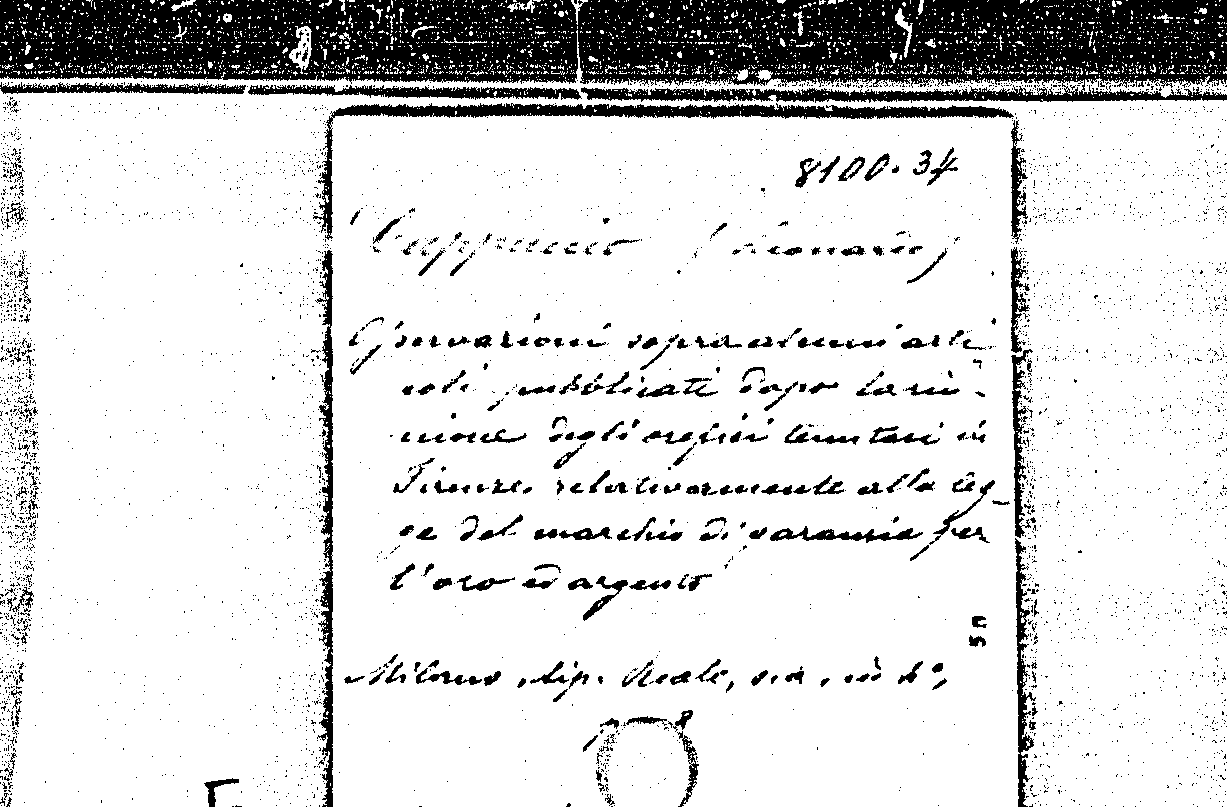 8100.34
Cappuccio (Leonardo)
Osservazioni sopra alcuni arti-
coli pubblicati dopo la riu-
nione degli orefici tenutasi in
Firenze relativamente alla leg-
ge del marchio di garanzia per
l'oro ed argento
5 n
Milano, tip. Reale, s. a., in 4°,
p. 8